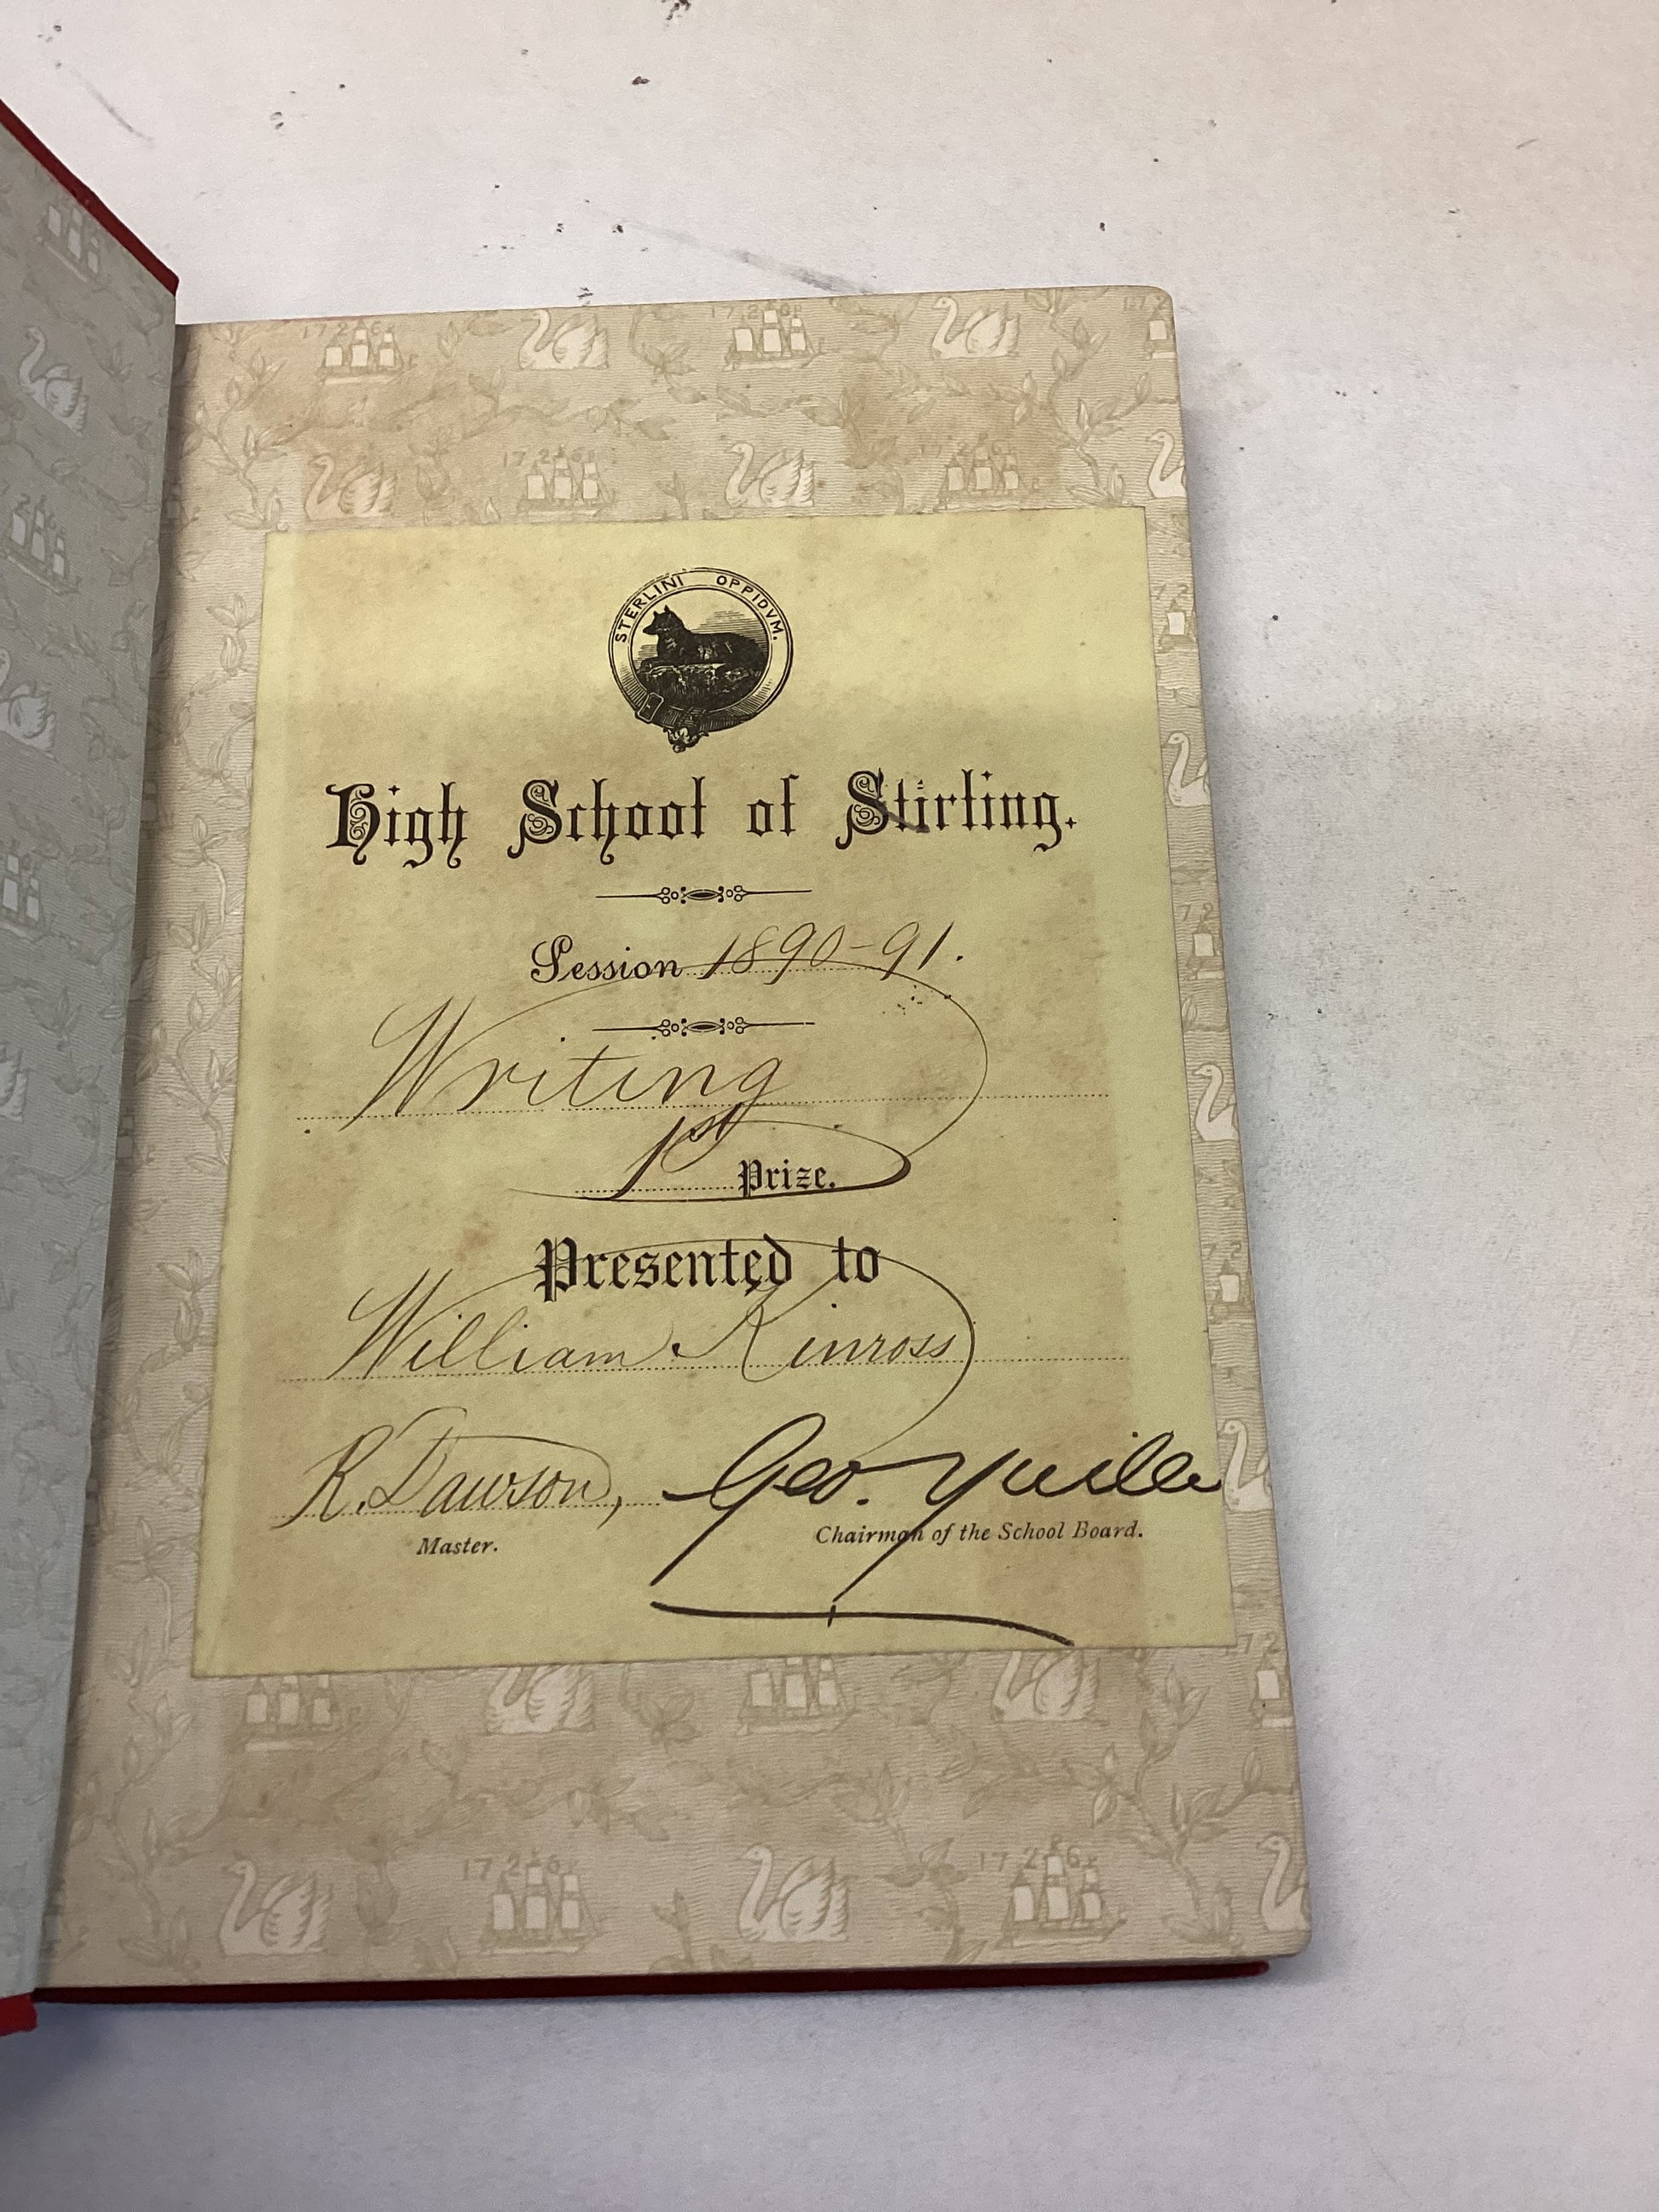 STERLINI OPPIDVM.
High School of Stirling.
Session 1890-91.
Writing
1st Prize.
Presented to
William Kinross
R. Dawson, Geo. Yuille
Master. Chairman of the School Board.
1726